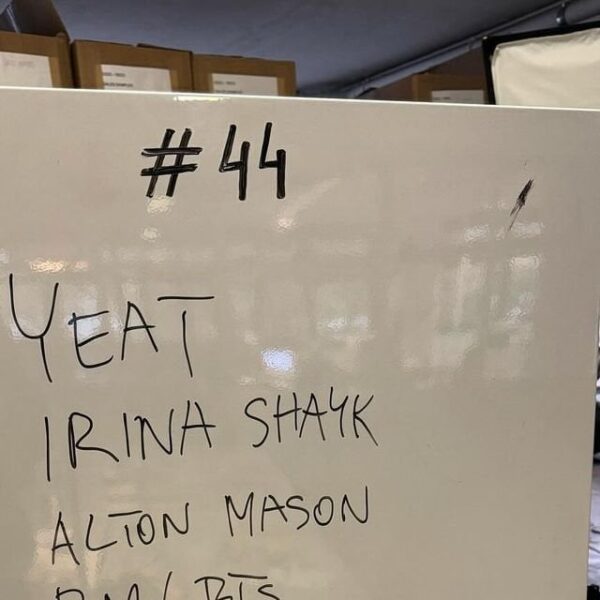 #44
YEAT
IRINA SHAYK
ALTON MASON
RM/BTS